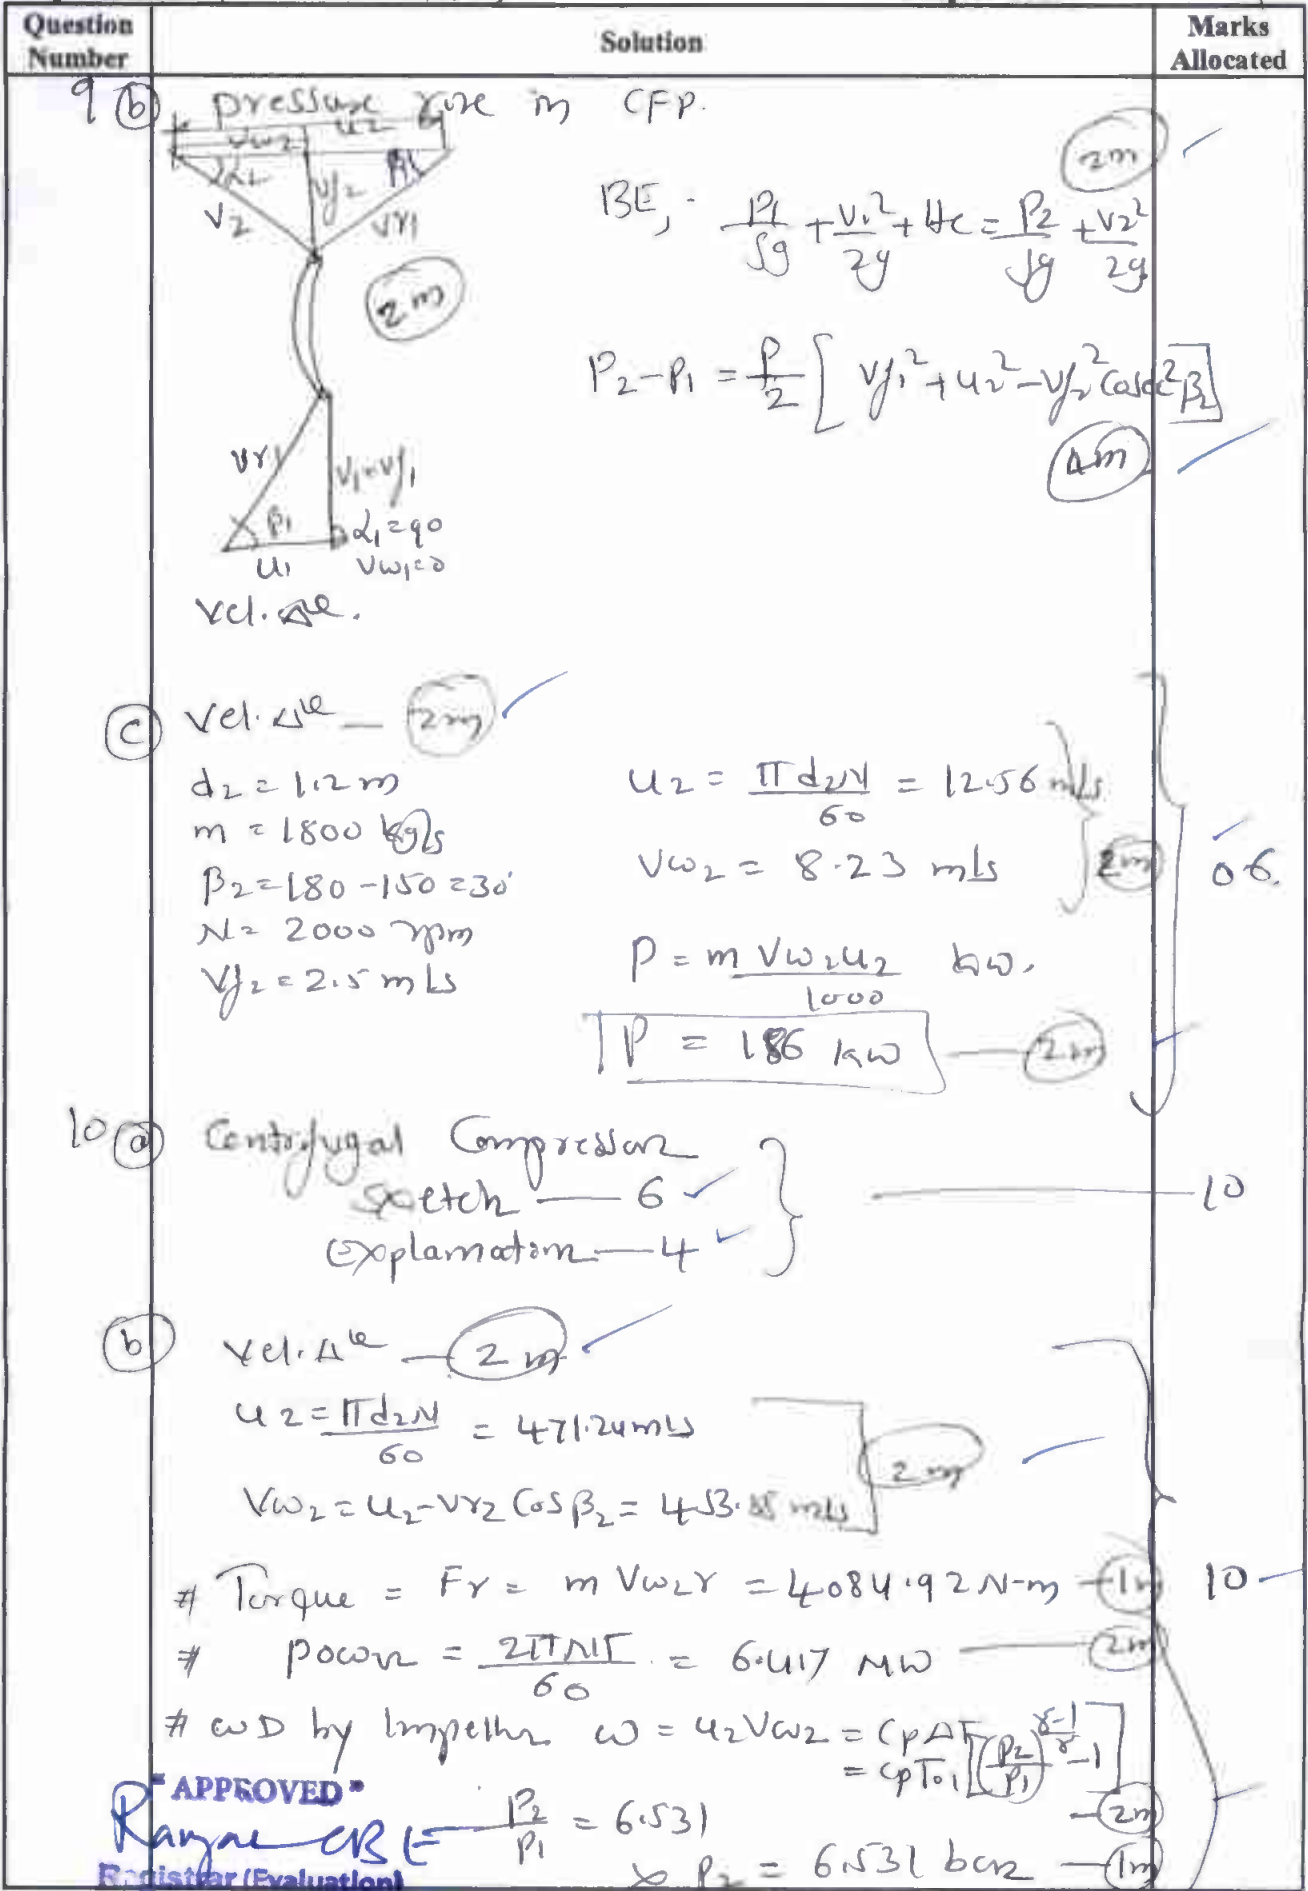 Question Number
Solution
Marks Allocated
9 (b) pressure rise in CFP.
u2
Vw2
α2 Vf2 β2
V2 Vr1
2m
2m
BE, P1/ρg + V1²/2g + Hc = P2/ρg + V2²/2g
P2-P1 = ρ/2 [Vf1² + u2² - Vf2² Cosec²β2]
4m
Vr1 V1=Vf1
β1 α1=90
u1 Vw1=0
Vel. Δle.
(c) Vel. Δle — 2m
d2 = 1.2 m
m = 1800 kg/s
β2 = 180 - 150 = 30°
N = 2000 rpm
Vf2 = 2.5 m/s
u2 = πd2N/60 = 12.56 m/s
Vw2 = 8.23 m/s
2m
06.
P = m Vw2 u2/1000 kw.
P = 186 kw — 2m
10 (a) Centrifugal Compressor
sketch — 6
explanation — 4
10
(b) Vel. Δle — 2m
u2 = πd2N/60 = 471.24 m/s
2m
Vw2 = u2 - Vr2 Cosβ2 = 453. m/s
# Torque = Fr = m Vw2 r = 4084.92 N-m — 1m
10
# power = 2πNT/60 = 6.417 MW — 2m
# WD by Impeller w = u2Vw2 = CpΔT
= CpTo1 [(P2/P1)^(γ-1/γ) - 1]
2m
P2/P1 = 6.531
P2 = 6.531 bar — 1m
"APPROVED"
CBE
Registrar (Evaluation)